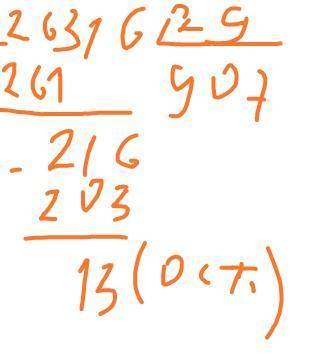 -26316 29
261 907
- 216
203
13 (Ост.)